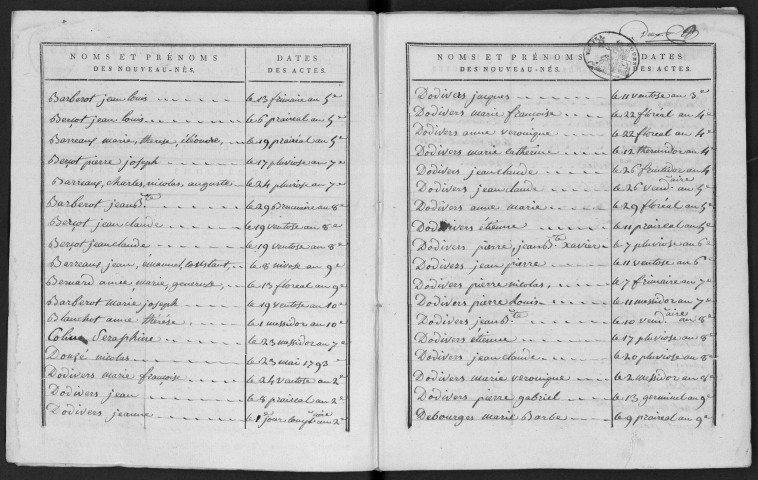 NOMS ET PRÉNOMS DES NOUVEAU-NÉS. DATES DES ACTES.
Barberot jean louis le 13 frimaire an 5e
Berçot jean louis le 6 prairéal an 5e
Barreaux marie, therese, éléonore, le 19 prairéal an 5e
Berçot pierre joseph le 17 pluviose an 7e
Barreaux, charles, nicolas, auguste le 24 pluviose an 7e
Barberot jean bte le 29 Brumaire an 8e
Berçot jean claude le 19 ventose an 8e
Berçot jean claude le 19 ventose an 8e
Barreaux jean, émanuel, constant, le 8 nivose an 9e
Bernard anne marie, genereuse, le 13 floreal an 9e
Barberot marie joseph le 19 ventose an 10e
Blanchot anne thérése, le 1 messidor an 10e
Colin Seraphine le 23 messidor an 7e
Dougé nicolas le 23 mai 1793
Dodivers marie françoise le 24 ventose an 2e
Dodivers jean le 8 prairéal an 2e
Dodivers jeanne le 1er jour complre an 2e
NOMS ET PRÉNOMS DES NOUVEAU-NÉS. DATES DES ACTES.
Dodivers jacques le 11 ventose an 3e
Dodivers marie françoise le 22 floréal an 4e
Dodivers anne veronique le 22 floréal an 4e
Dodivers marie catherine le 12 thermidor an 4e
Dodivers jean claude le 26 fructidor an 4e
Dodivers jean claude le 26 vendaire an 5e
Dodivers anne marie le 29 floréal an 5e
Dodivers étienne le 11 prairéal an 5e
Dodivers pierre, jean bte xavier le 7 pluviose an 6e
Dodivers jean pierre le 11 ventose an 6e
Dodivers pierre nicolas, le 7 frimaire an 7e
Dodivers pierre Louis le 11 messidor an 7e
Dodivers jean bte le 10 vendaire an 8e
Dodivers étienne le 17 pluviose an 8e
Dodivers jean claude le 20 pluviose an 8e
Dodivers marie veronique le 2 messidor an 8e
Dodivers pierre gabriel le 13 germinal an 9e
Debourges marie Barbe le 9 prairéal an 9e